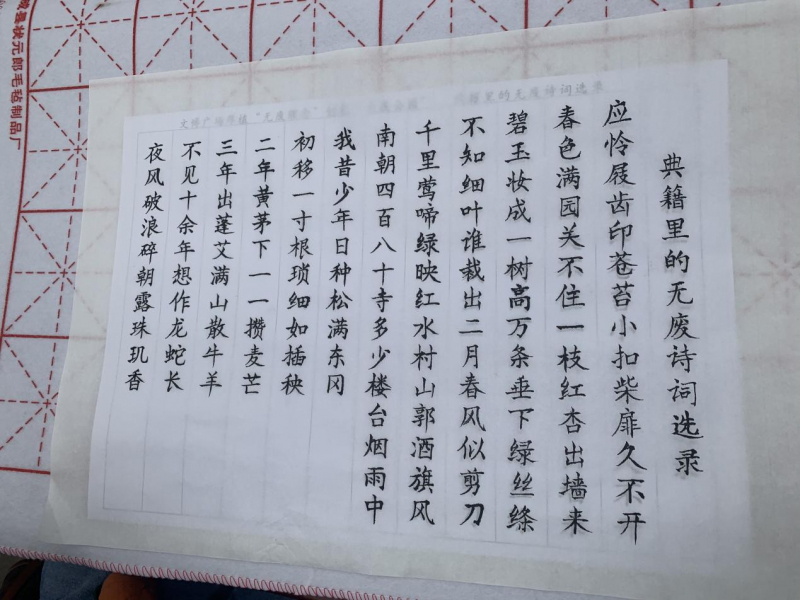 典籍里的无废诗词选录
应怜屐齿印苍苔小扣柴扉久不开
春色满园关不住一枝红杏出墙来
碧玉妆成一树高万条垂下绿丝绦
不知细叶谁裁出二月春风似剪刀
千里莺啼绿映红水村山郭酒旗风
南朝四百八十寺多少楼台烟雨中
我昔少年日种松满东冈
初移一寸根琐细如插秧
二年黄茅下一一攒麦芒
三年出蓬艾满山散牛羊
不见十余年想作龙蛇长
夜风破浪碎朝露珠玑香
状元郎毛毡制品厂
的无废诗词选录